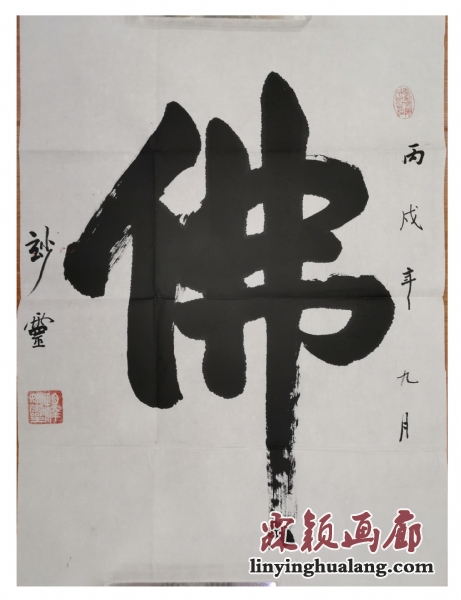 丙戌年九月
佛
玅靈
霖颖画廊
linyinghualang.com